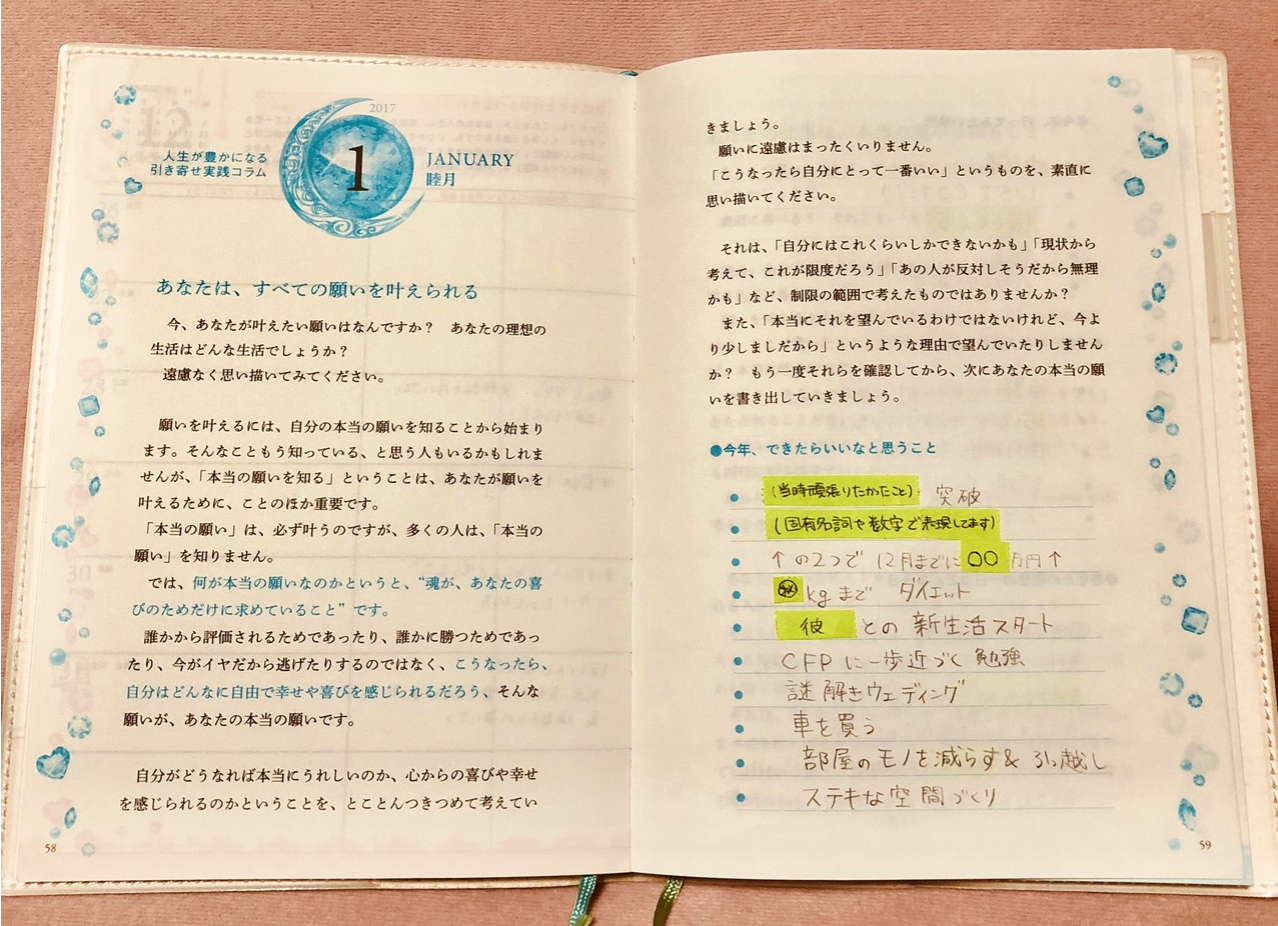 2017
人生が豊かになる
引き寄せ実践コラム
1
JANUARY
睦月
あなたは、すべての願いを叶えられる
今、あなたが叶えたい願いはなんですか?　あなたの理想の
生活はどんな生活でしょうか?
遠慮なく思い描いてみてください。
願いを叶えるには、自分の本当の願いを知ることから始まり
ます。そんなこともう知っている、と思う人もいるかもしれま
せんが、「本当の願いを知る」ということは、あなたが願いを
叶えるために、ことのほか重要です。
「本当の願い」は、必ず叶うのですが、多くの人は、「本当の
願い」を知りません。
では、何が本当の願いなのかというと、“魂が、あなたの喜
びのためだけに求めていること”です。
誰かから評価されるためであったり、誰かに勝つためであっ
たり、今がイヤだから逃げたりするのではなく、こうなったら、
自分はどんなに自由で幸せや喜びを感じられるだろう、そんな
願いが、あなたの本当の願いです。
自分がどうなれば本当にうれしいのか、心からの喜びや幸せ
を感じられるのかということを、とことんつきつめて考えてい
58
きましょう。
願いに遠慮はまったくいりません。
「こうなったら自分にとって一番いい」というものを、素直に
思い描いてください。
それは、「自分にはこれくらいしかできないかも」「現状から
考えて、これが限度だろう」「あの人が反対しそうだから無理
かも」など、制限の範囲で考えたものではありませんか?
また、「本当にそれを望んでいるわけではないけれど、今よ
り少しましだから」というような理由で望んでいたりしません
か?　もう一度それらを確認してから、次にあなたの本当の願
いを書き出していきましょう。
●今年、できたらいいなと思うこと
● (当時頑張りたかたこと) 突破
● (固有名詞や数字で表現してます)
● ↑の2つで 12月までに〇〇万円↑
● kgまで ダイエット
● 彼 との 新生活スタート
● CFPに一歩近づく勉強
● 謎解きウェディング
● 車を買う
● 部屋のモノを減らす& 引っ越し
● ステキな空間づくり
59